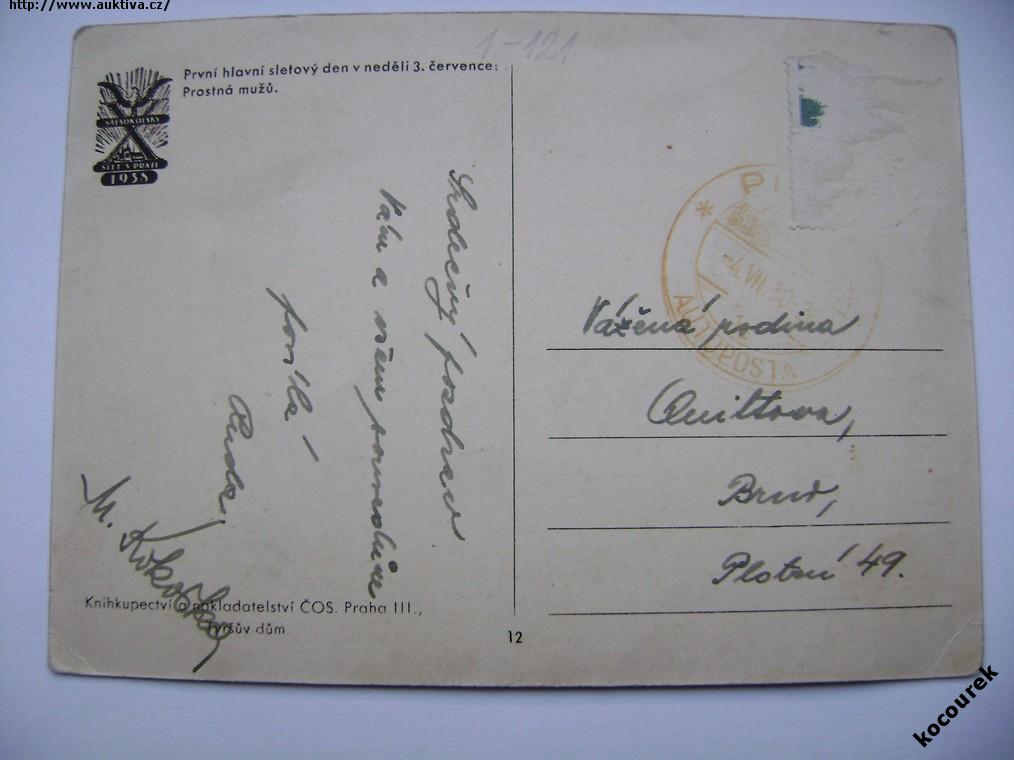 http://www.auktiva.cz/
1-121
První hlavní sletový den v neděli 3. července:
Prostná mužů.
VŠESOKOLSKÝ
X
SLET V PRAZE
1938
Srdečný pozdrav
Vám a všem
posílá
Ruda.
M.
Knihkupectví a nakladatelství ČOS. Praha III.,
Tyršův dům.
12
-4.VII.38
AUTOPOŠTA
Vážená rodina
Quittova,
Brno,
Plotní 49.
kocourek